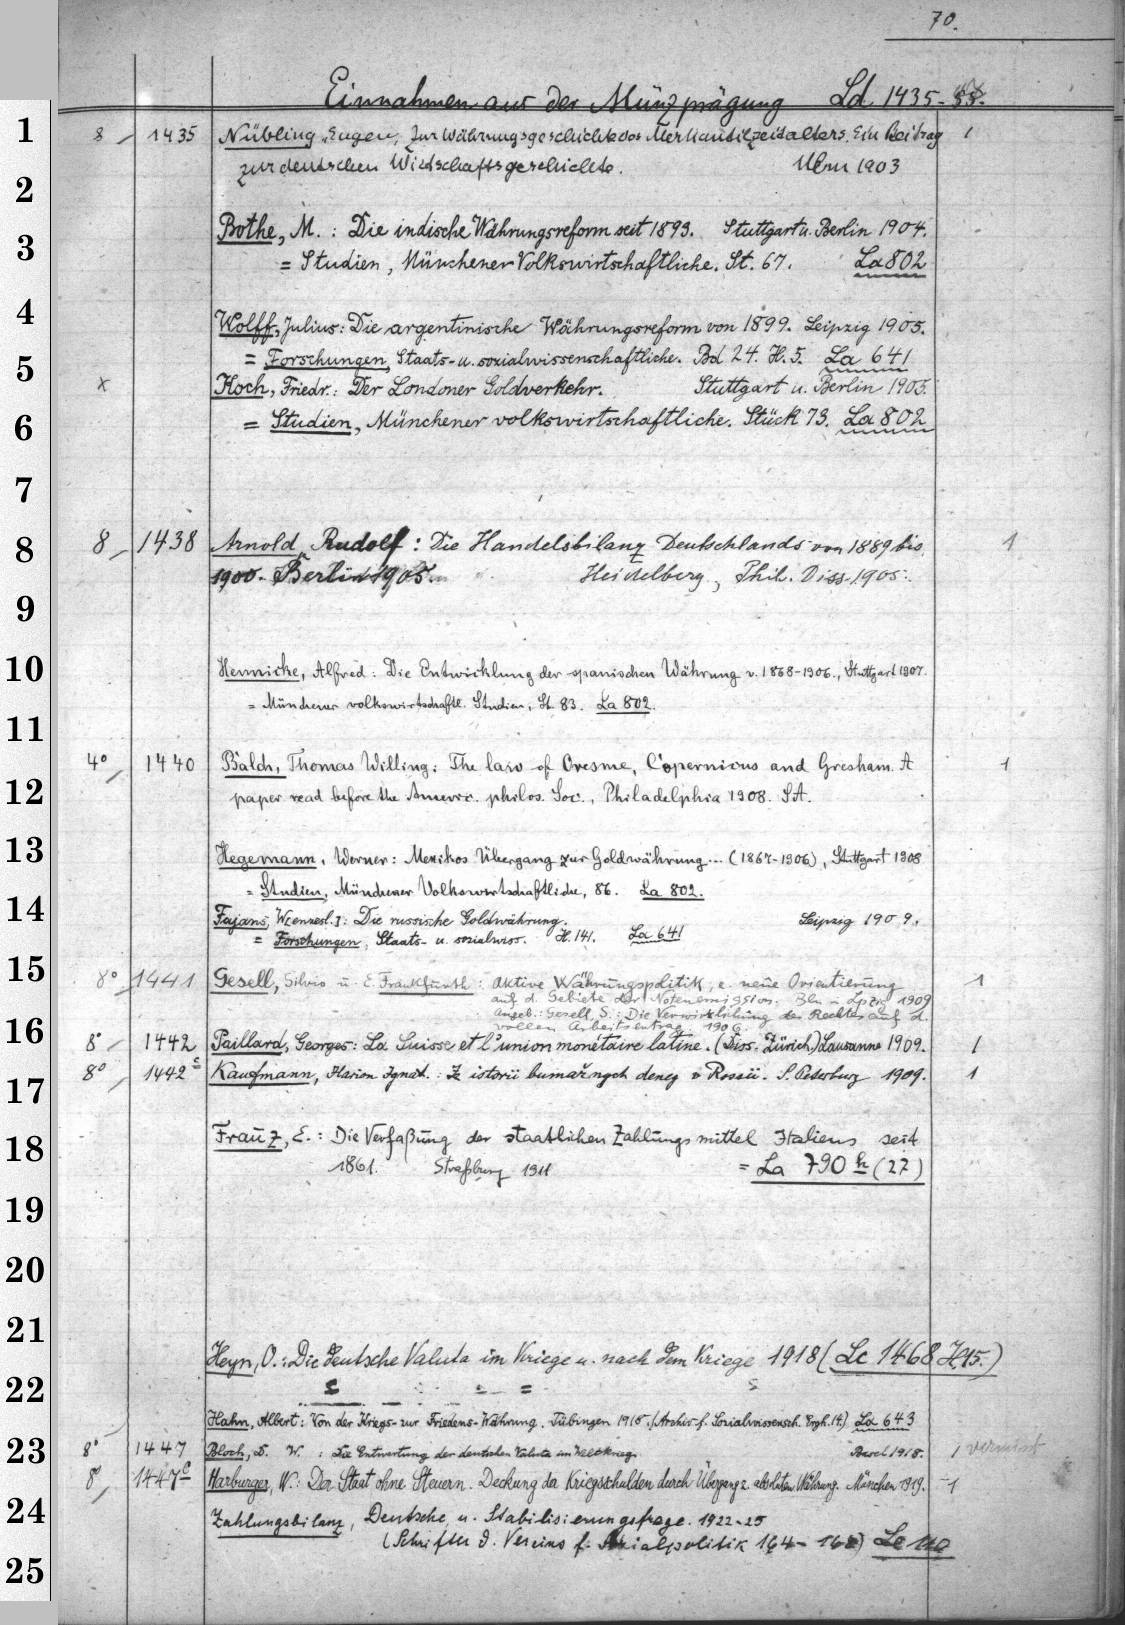 70.
Einnahmen aus der Münzprägung Ld 1435-
1 8 1435 Nübling, Eugen, Zur Währungsgeschichte des Merkantilzeitalters. Ein Beitrag 1
zur deutschen Wirtschaftsgeschichte. Ulm 1903
2
Bothe, M.: Die indische Währungsreform seit 1893. Stuttgart u. Berlin 1904.
3 = Studien, Münchener Volkswirtschaftliche. St. 67. La 802
4 Wolff, Julius: Die argentinische Währungsreform von 1899. Leipzig 1905.
= Forschungen, Staats- u. sozialwissenschaftliche. Bd 24. H. 5. La 641
5 x Koch, Friedr.: Der Londoner Goldverkehr. Stuttgart u. Berlin 1905.
6 = Studien, Münchener volkswirtschaftliche. Stück 73. La 802
7
8 8 1438 Arnold, Rudolf: Die Handelsbilanz Deutschlands von 1889 bis 1
1900. Berlin 1905. Heidelberg, Phil. Diss. 1905.
9
10 Hennicke, Alfred: Die Entwicklung der spanischen Währung v. 1868-1906., Stuttgart 1907.
= Münchener volkswirtschaftl. Studien, St. 83. La 802.
11
4° 1440 Balch, Thomas Willing: The law of Oresme, Copernicus and Gresham. A 1
12 paper read before the Americ. philos. Soc., Philadelphia 1908. SA.
13 Hegemann, Werner: Mexikos Übergang zur Goldwährung... (1867-1906), Stuttgart 1908
= Studien, Münchener Volkswirtschaftliche, 86. La 802.
14 Fajans, W[enzesl.]: Die russische Goldwährung. Leipzig 1909.
= Forschungen, Staats- u. sozialwiss. H. 141. La 641
15 8° 1441 Gesell, Silvio u. E. Frankfurth: Aktive Währungspolitik, e. neue Orientierung 1
auf d. Gebiete der Notenemission. Bln u. Lpzig 1909
Angeb.: Gesell, S.: Die Verwirklichung des Rechtes auf d.
vollen Arbeitsertrag. 1906.
16 8° 1442 Paillard, Georges: La Suisse et l'union monétaire latine. (Diss. Zürich) Lausanne 1909. 1
17 8° 1442 c Kaufmann, Illarion Ignat.: Iz istorii bumažnych deneg v Rossii. S. Petersburg 1909. 1
18 Franz, E.: Die Verfaßung der staatlichen Zahlungsmittel Italiens seit
1861. Straßburg 1911 = La 790 h (27)
19
20
21
Heyn, O.: Die deutsche Valuta im Kriege u. nach dem Kriege 1918 (Lc 1468 H15.)
22
Hahn, Albert: Von der Kriegs- zur Friedens-Währung. Tübingen 1918. (Archiv f. Sozialwissensch. Ergh. 14.) La 643
23 8° 1447 Bloch, D. W.: Die Entwertung der deutschen Valuta im Weltkrieg. Basel 1918. 1 vermisst
8° 1447 c Harburger, W.: Der Staat ohne Steuern. Deckung der Kriegsschulden durch Übergang z. absoluten Währung. München 1919. 1
24 Zahlungsbilanz, Deutsche, u. Stabilisierungsfrage. 1922-25
(Schriften d. Vereins f. Sozialpolitik 164-168) Lc 110
25